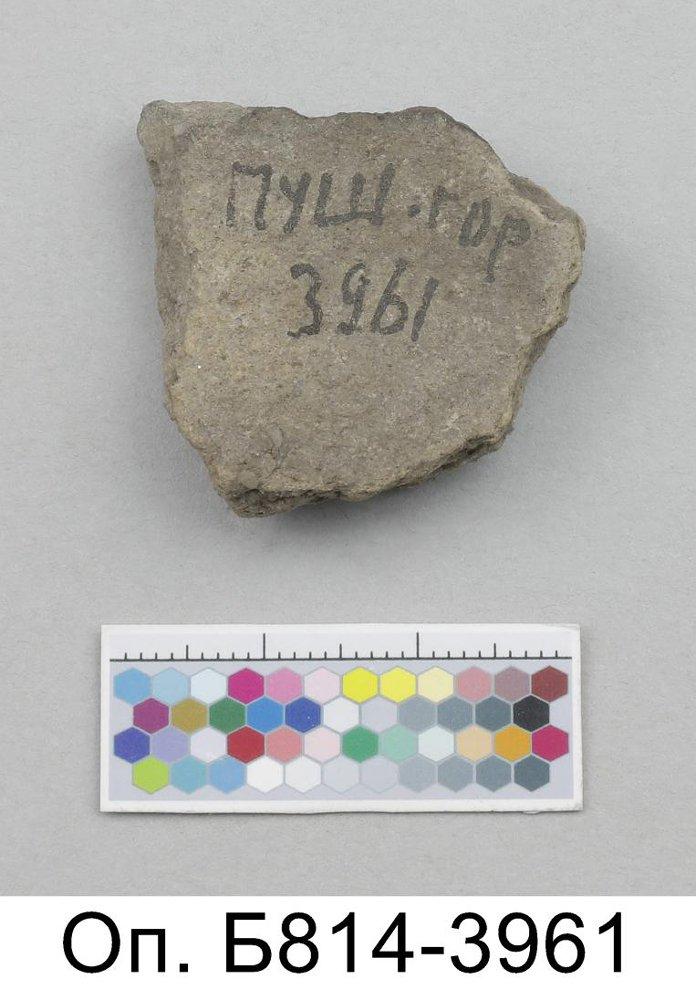 ПУШ.гор
3961
Оп. Б814-3961